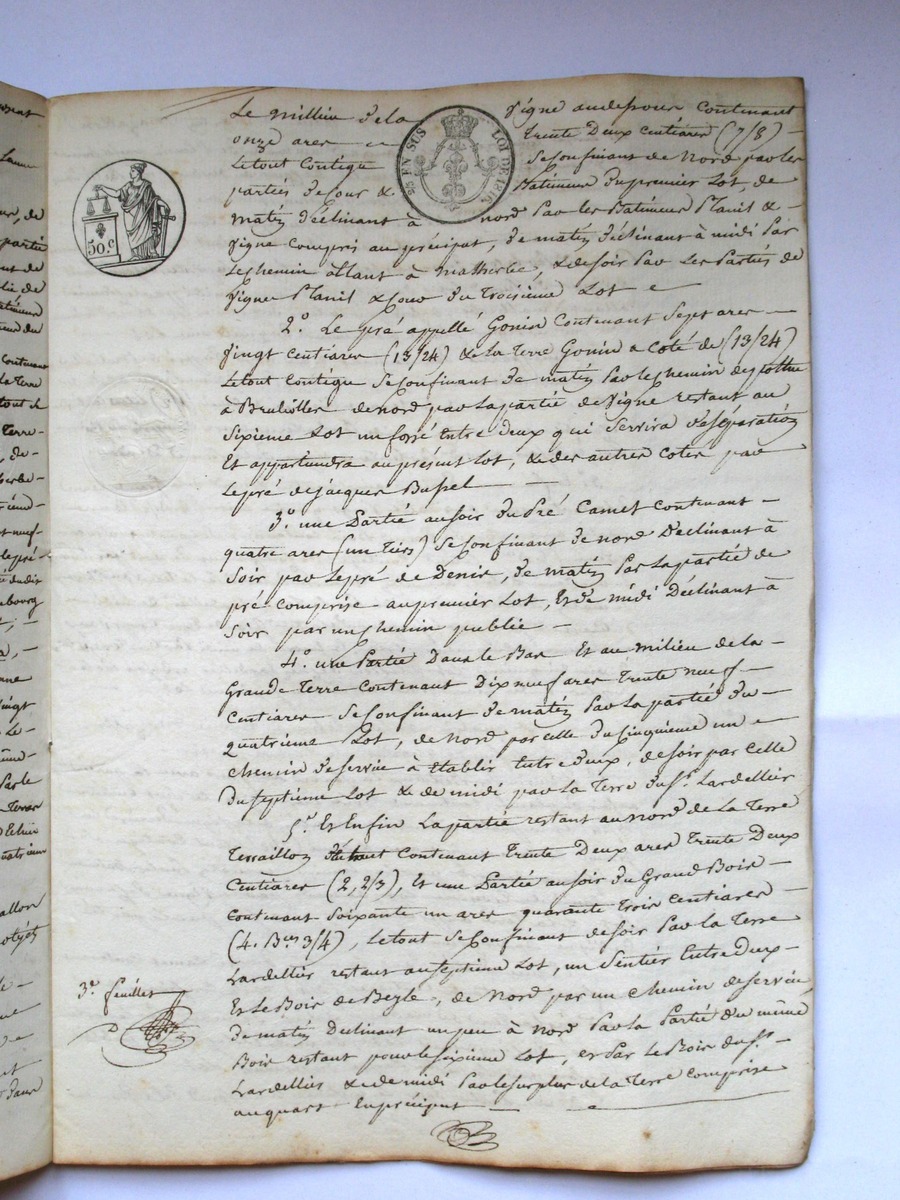 Le millieu de la vigne audessous Contenant
onze ares trente Deux Centiares (7/8) —
Letout Contigu Se Confinant de Nord par les
partiés de Cour & Batimens Du premier Lot, de
matin déclinant à nord par les Batimens Planil &
vigne Compris au préciput, de matin déclinant à midi par
Le chemin allant à Malherbe, & de soir par Les Partiés de
vigne Planil & Cour du Troisieme Lot
2.° Le pré appellé Gonin Contenant Sept ares —
vingt Centiares (13/24) & La Terre Gonin a Coté de (13/24)
Letout Contigu Se Confinant de matin par le chemin de
à Brulliolles de nord par la partié de vigne restant au
Sixieme Lot un fossé entre deux qui Servira de Séparation
Et appartiendra au présent Lot, & des autres Cotés par
Le pré de jacques Bussel —
3.° une Partié au soir du Pré Camet Contenant —
quatre ares (un Tiers) Se Confinant de nord Déclinant à
Soir par Le pré de Denis, de matin Par La partié de
pré Comprise au premier Lot, Et de midi Déclinant à
Soir par un chemin public —
4.° une Partié Dans le Bas Et au milieu de la
Grande Terre Contenant Dix neuf ares Trente neuf —
Centiares Se Confinant de matin Par La partié du —
quatrieme Lot, de Nord par celle du Cinquieme un
chemin de servie à établir Entre deux, de soir par Celle
Du septieme Lot & de midi par La Terre du S.r Lardellier
5.° Et Enfin La partié restant au Nord de La Terre
Terraillon Contenant Trente Deux ares Trente Deux
Centiares (2, 2/3), Et une Partié au soir du Grand Bois —
Contenant Soixante un ares quarante Trois Centiares —
(4. B.es 3/4), Letout Se Confinant de soir Par La Terre
Lardellier restant au septieme Lot, un Sentier Entre deux —
Et Le Bois de Beyle, de Nord par un chemin de servie
de matin Déclinant un peu à Nord Par La Partié du même
Bois restant pour le sixieme Lot, et Par Le Bois du S.r
Lardellier & de midi Par le surplus de La Terre Comprise
au quart En préciput —
3.e feuillet
50.c
25 EN SUS
LOI DE 1816